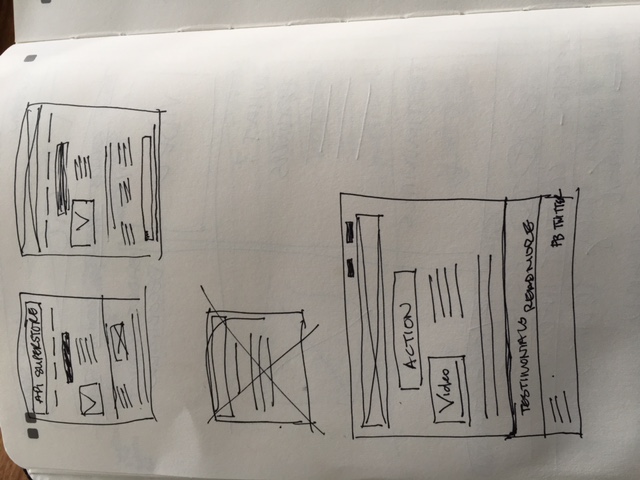 API SUPERSTORE
ACTION
Video
TESTIMONIALS READ MORE
FB TWITTER